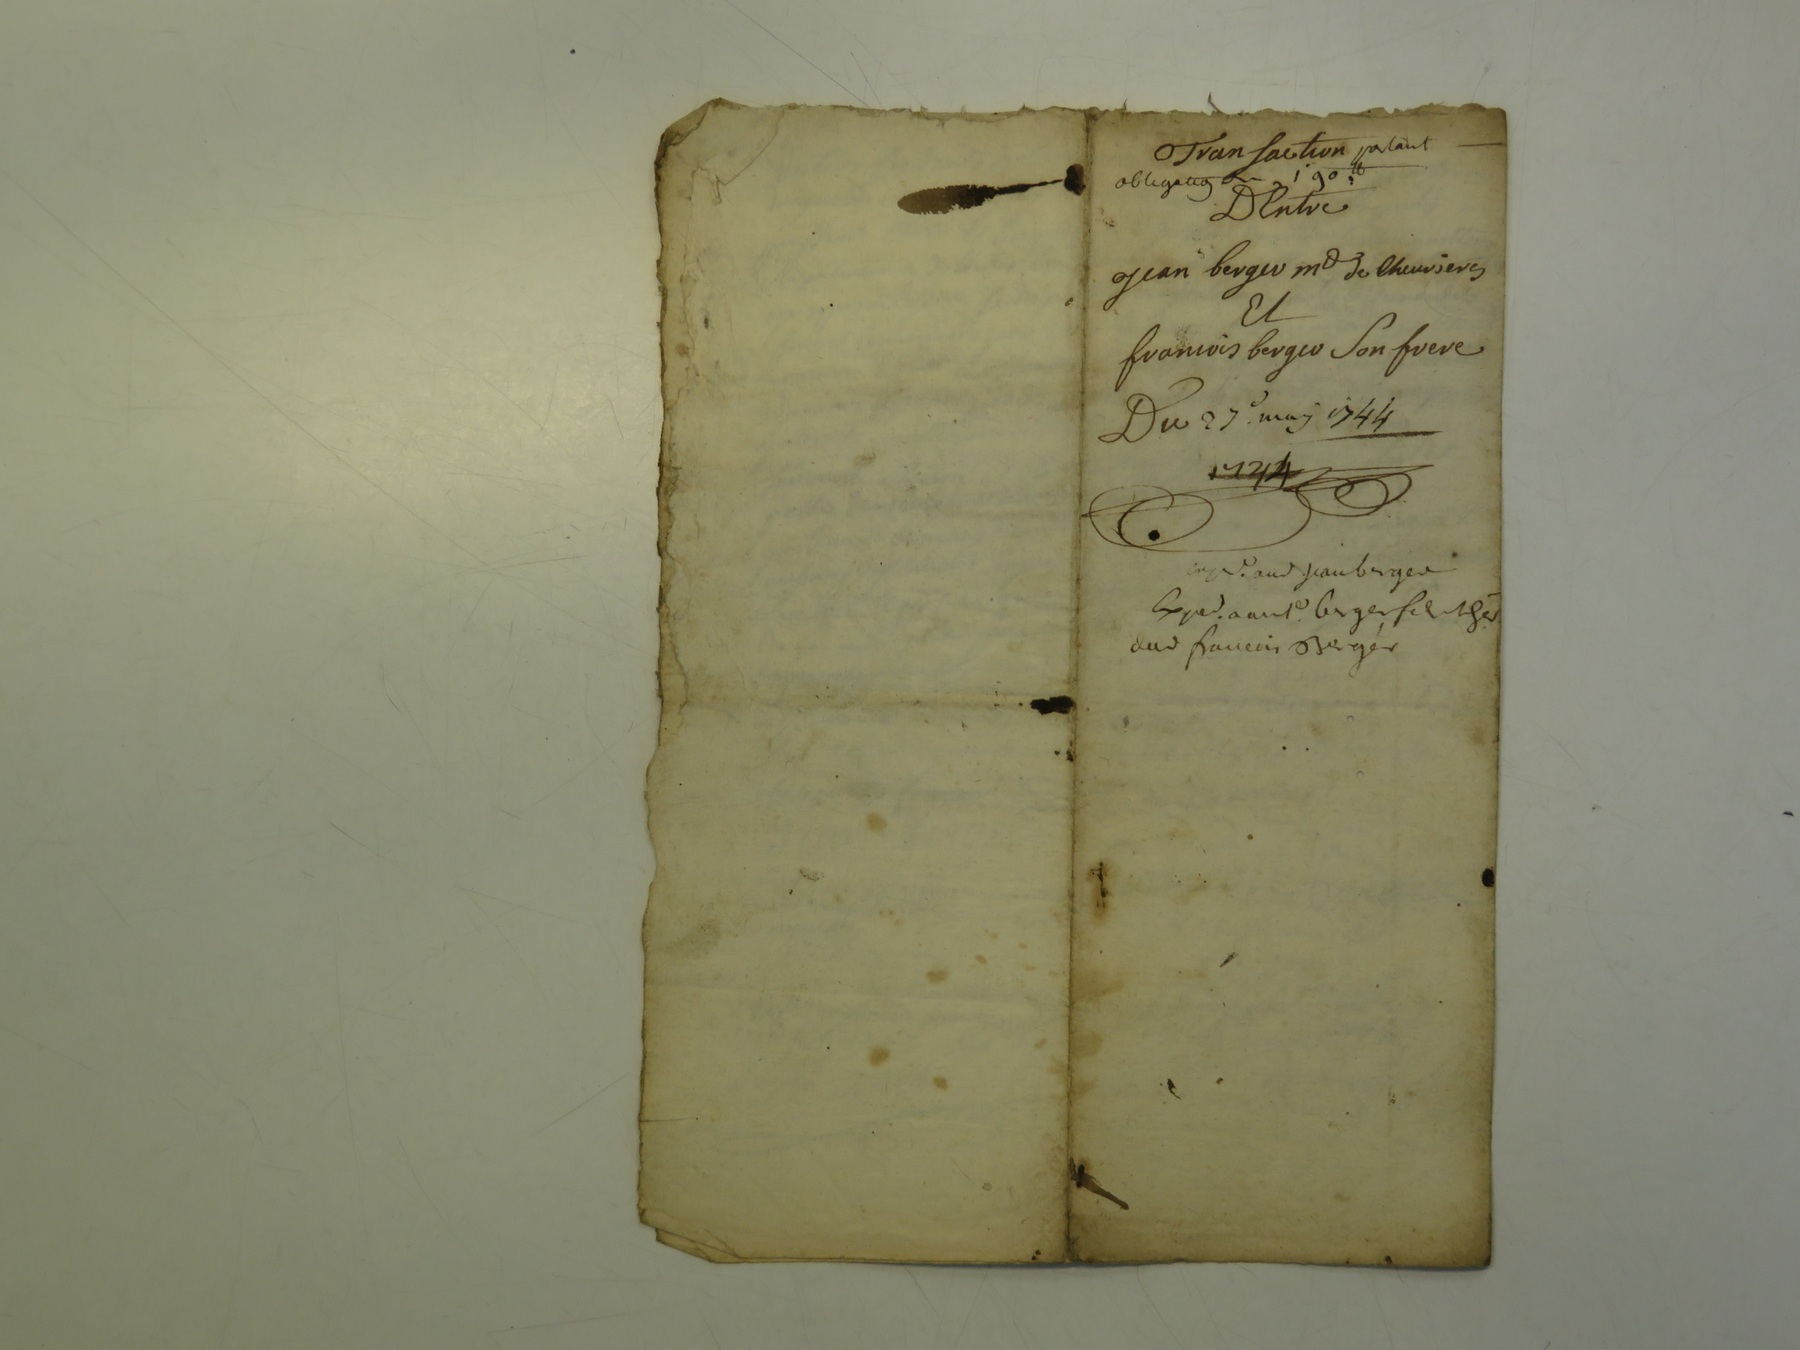 Transaction portant
obligation 190 ₶
D'Entre
jean berger md de Chevrieres
Et
francois berger Son frere
Du 27e may 1744
1744
aud jean berger
Exped. a ant.e berger
aud francois Berger